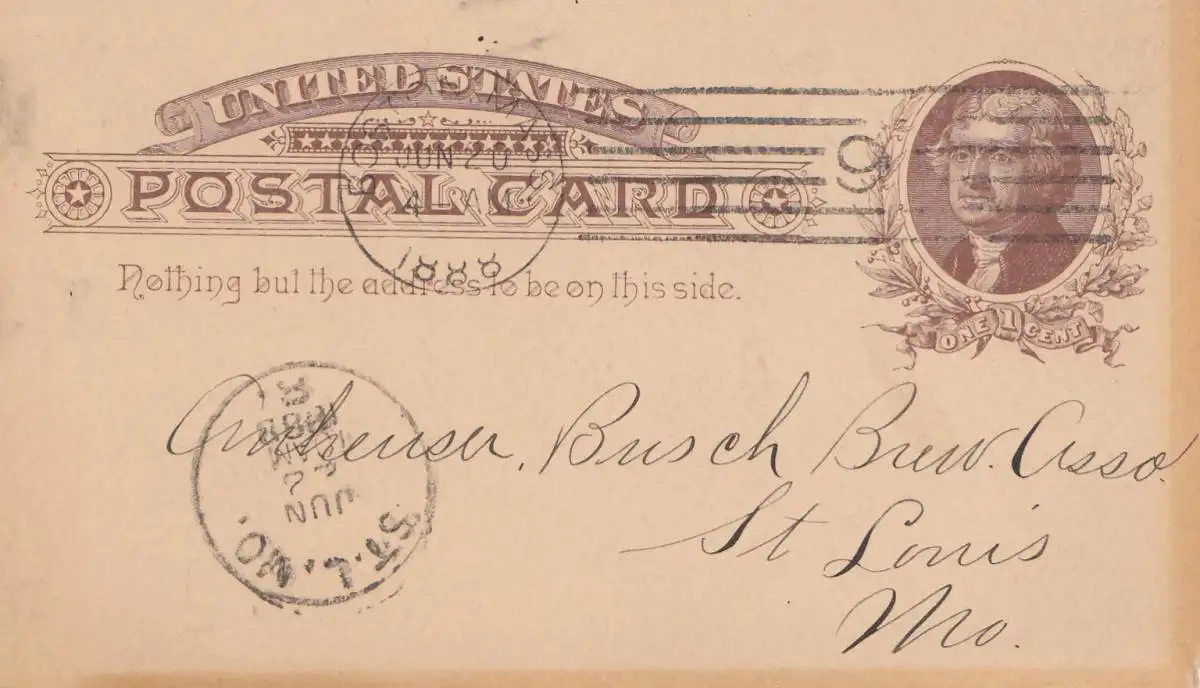 UNITED STATES
POSTAL CARD
BOSTON, MASS.
JUN 20
4
1888
9
Nothing but the address to be on this side.
ONE 1 CENT
Anheuser, Busch Brew. Asso.
St Louis
Mo.
ST. L. MO.
JUN
1888